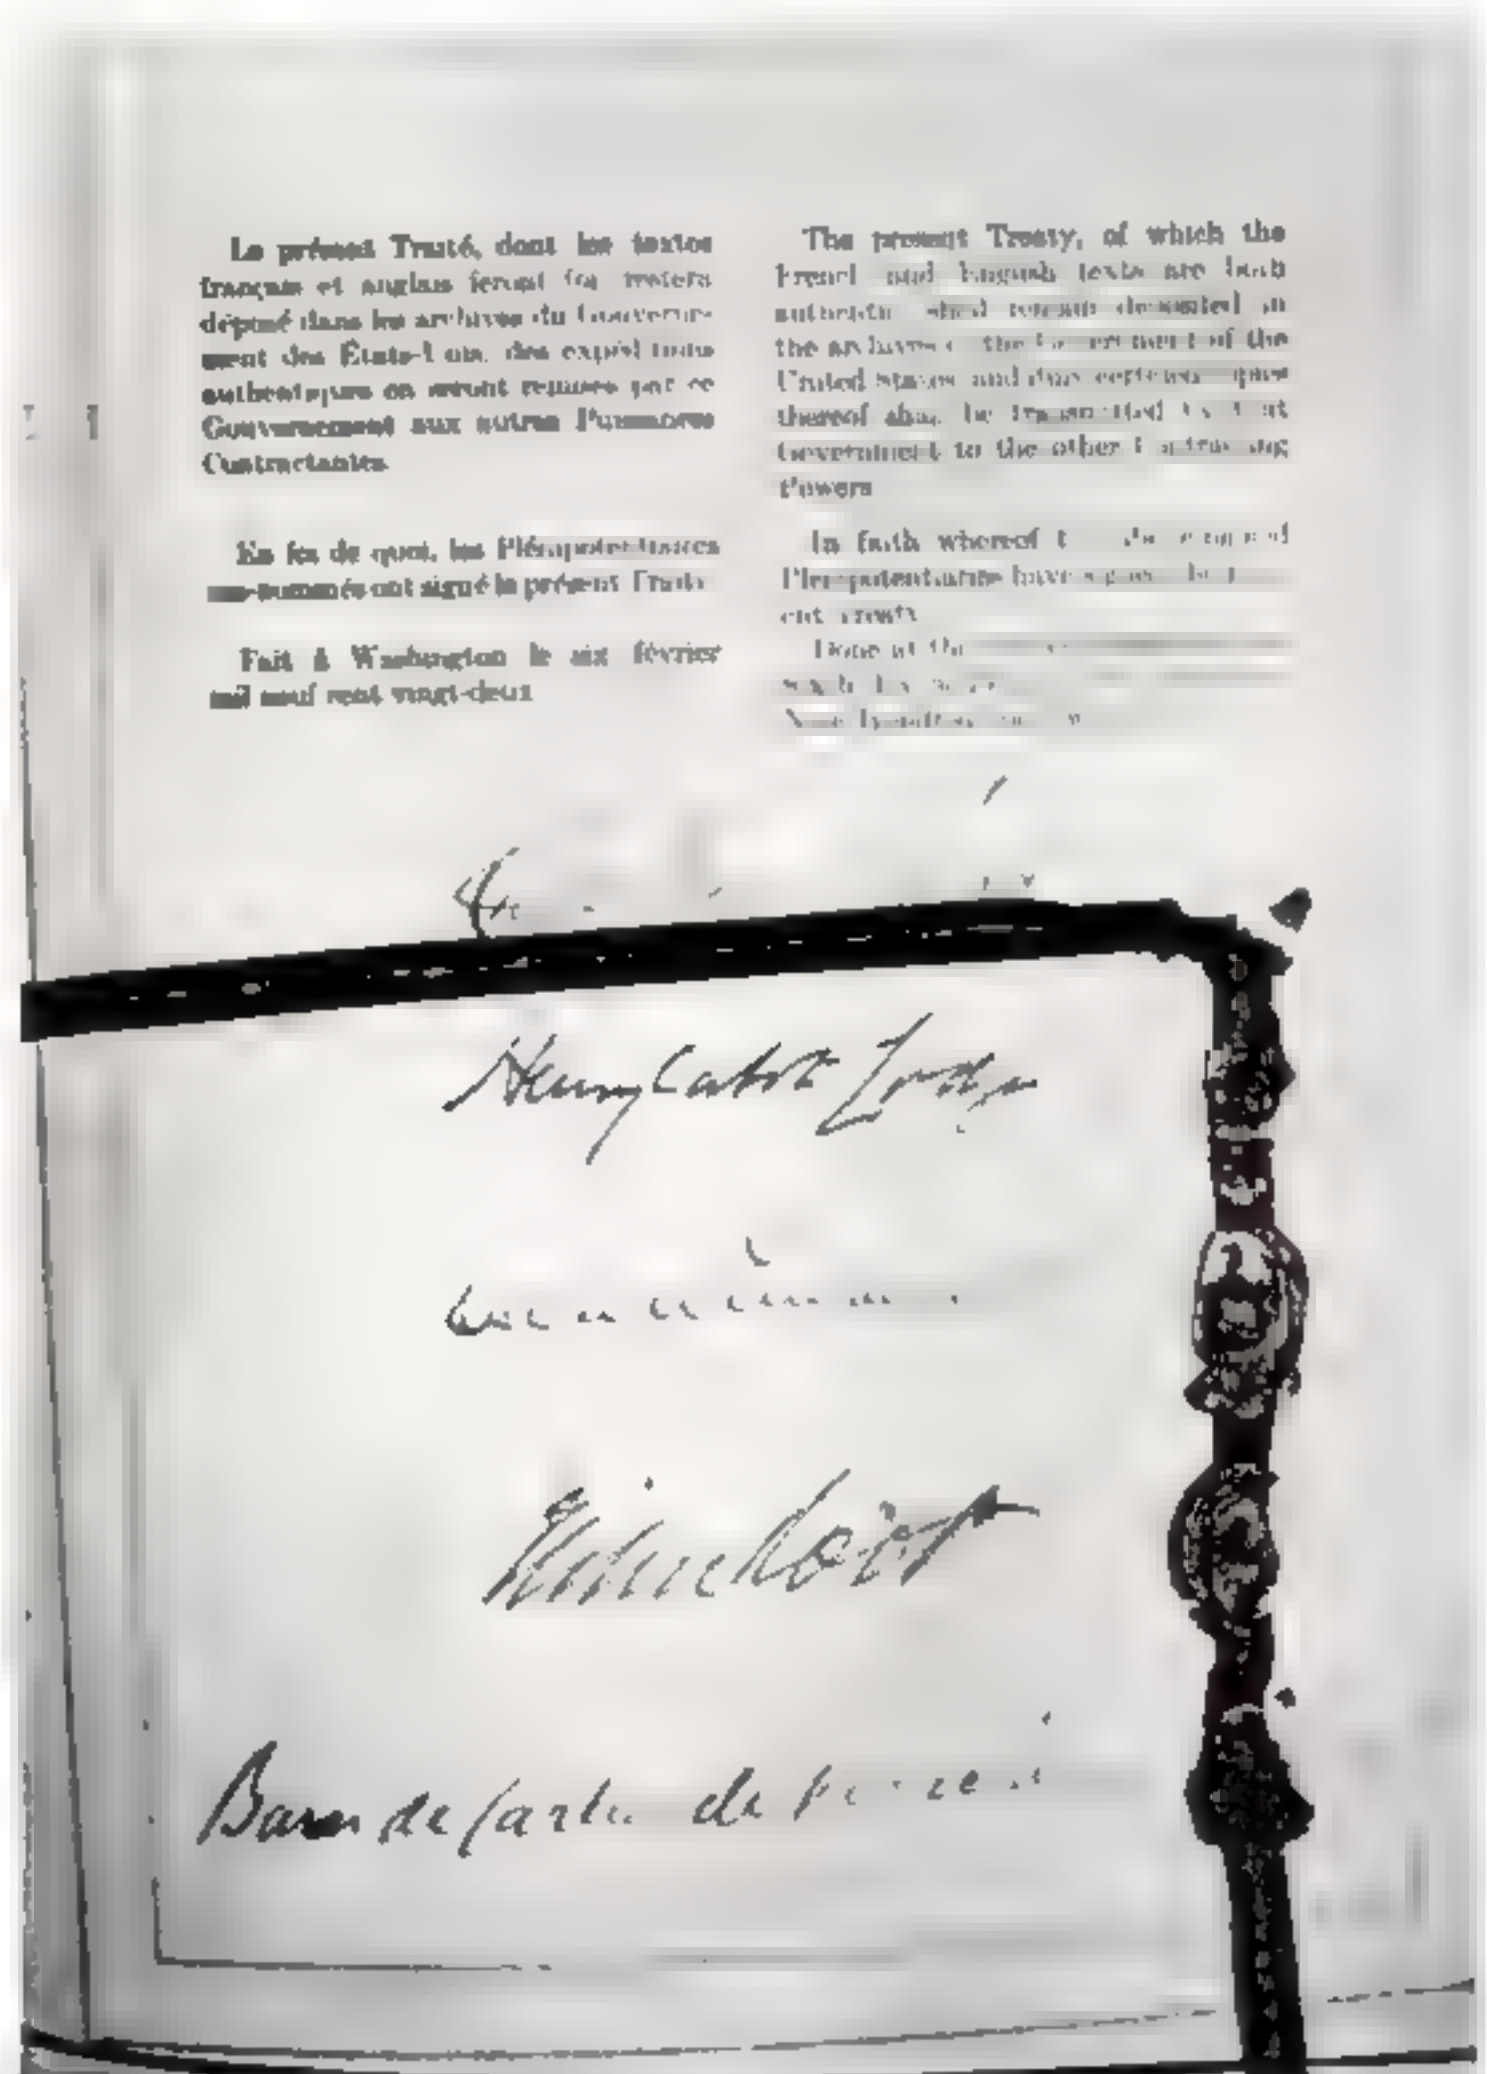 Le présent Traité, dont les textes
français et anglais feront foi restera
déposé dans les archives du Gouverne-
ment des États-Unis, des expéditions
authentiques en seront remises par ce
Gouvernement aux autres Puissances
Contractantes.
En foi de quoi, les Plénipotentiaires
sus-nommés ont signé le présent Traité
Fait à Washington le six février
mil neuf cent vingt-deux
The present Treaty, of which the
French and English texts are both
authentic shall remain deposited in
the archives of the Government of the
United States and duly certified copies
thereof shall be transmitted by that
Government to the other Contracting
Powers
In faith whereof the
Plenipotentiaries have signed
ent Treaty
Done at the
Henry Cabot Lodge
Elihu Root
Baron de Cartier de